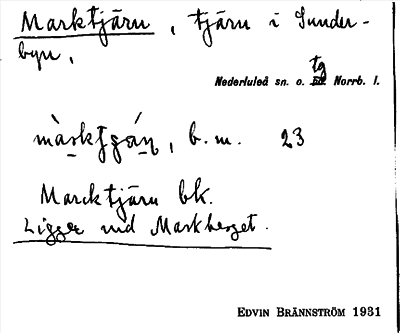 Marktjärn, tjärn i Sunder-
byn,
tg
Nederluleå sn. o. Norrb. l.
b.m. 23
Marcktjärn bk.
Ligger vid Markberget.
EDVIN BRÄNNSTRÖM 1931